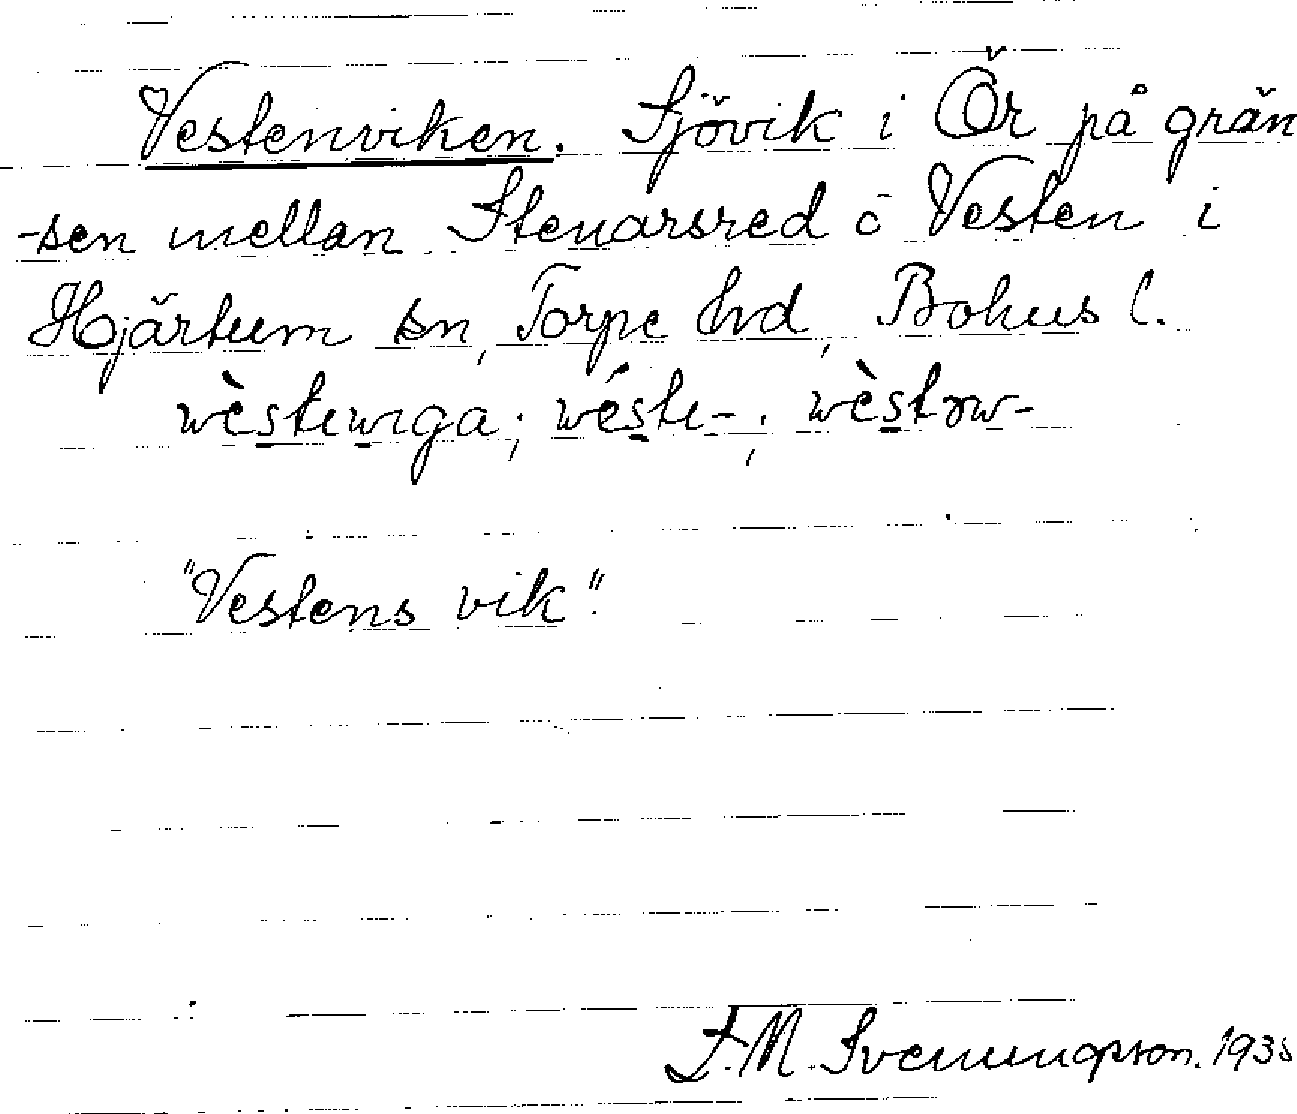 Vestenviken. Sjövik i Ör på grän
-sen mellan Stenarsred o Vesten i
Hjärtum sn, Torpe hd, Bohus l.
wèstewıga; wéste-; wèstəw-
"Vestens vik".
F. M. Svenungsson. 1935